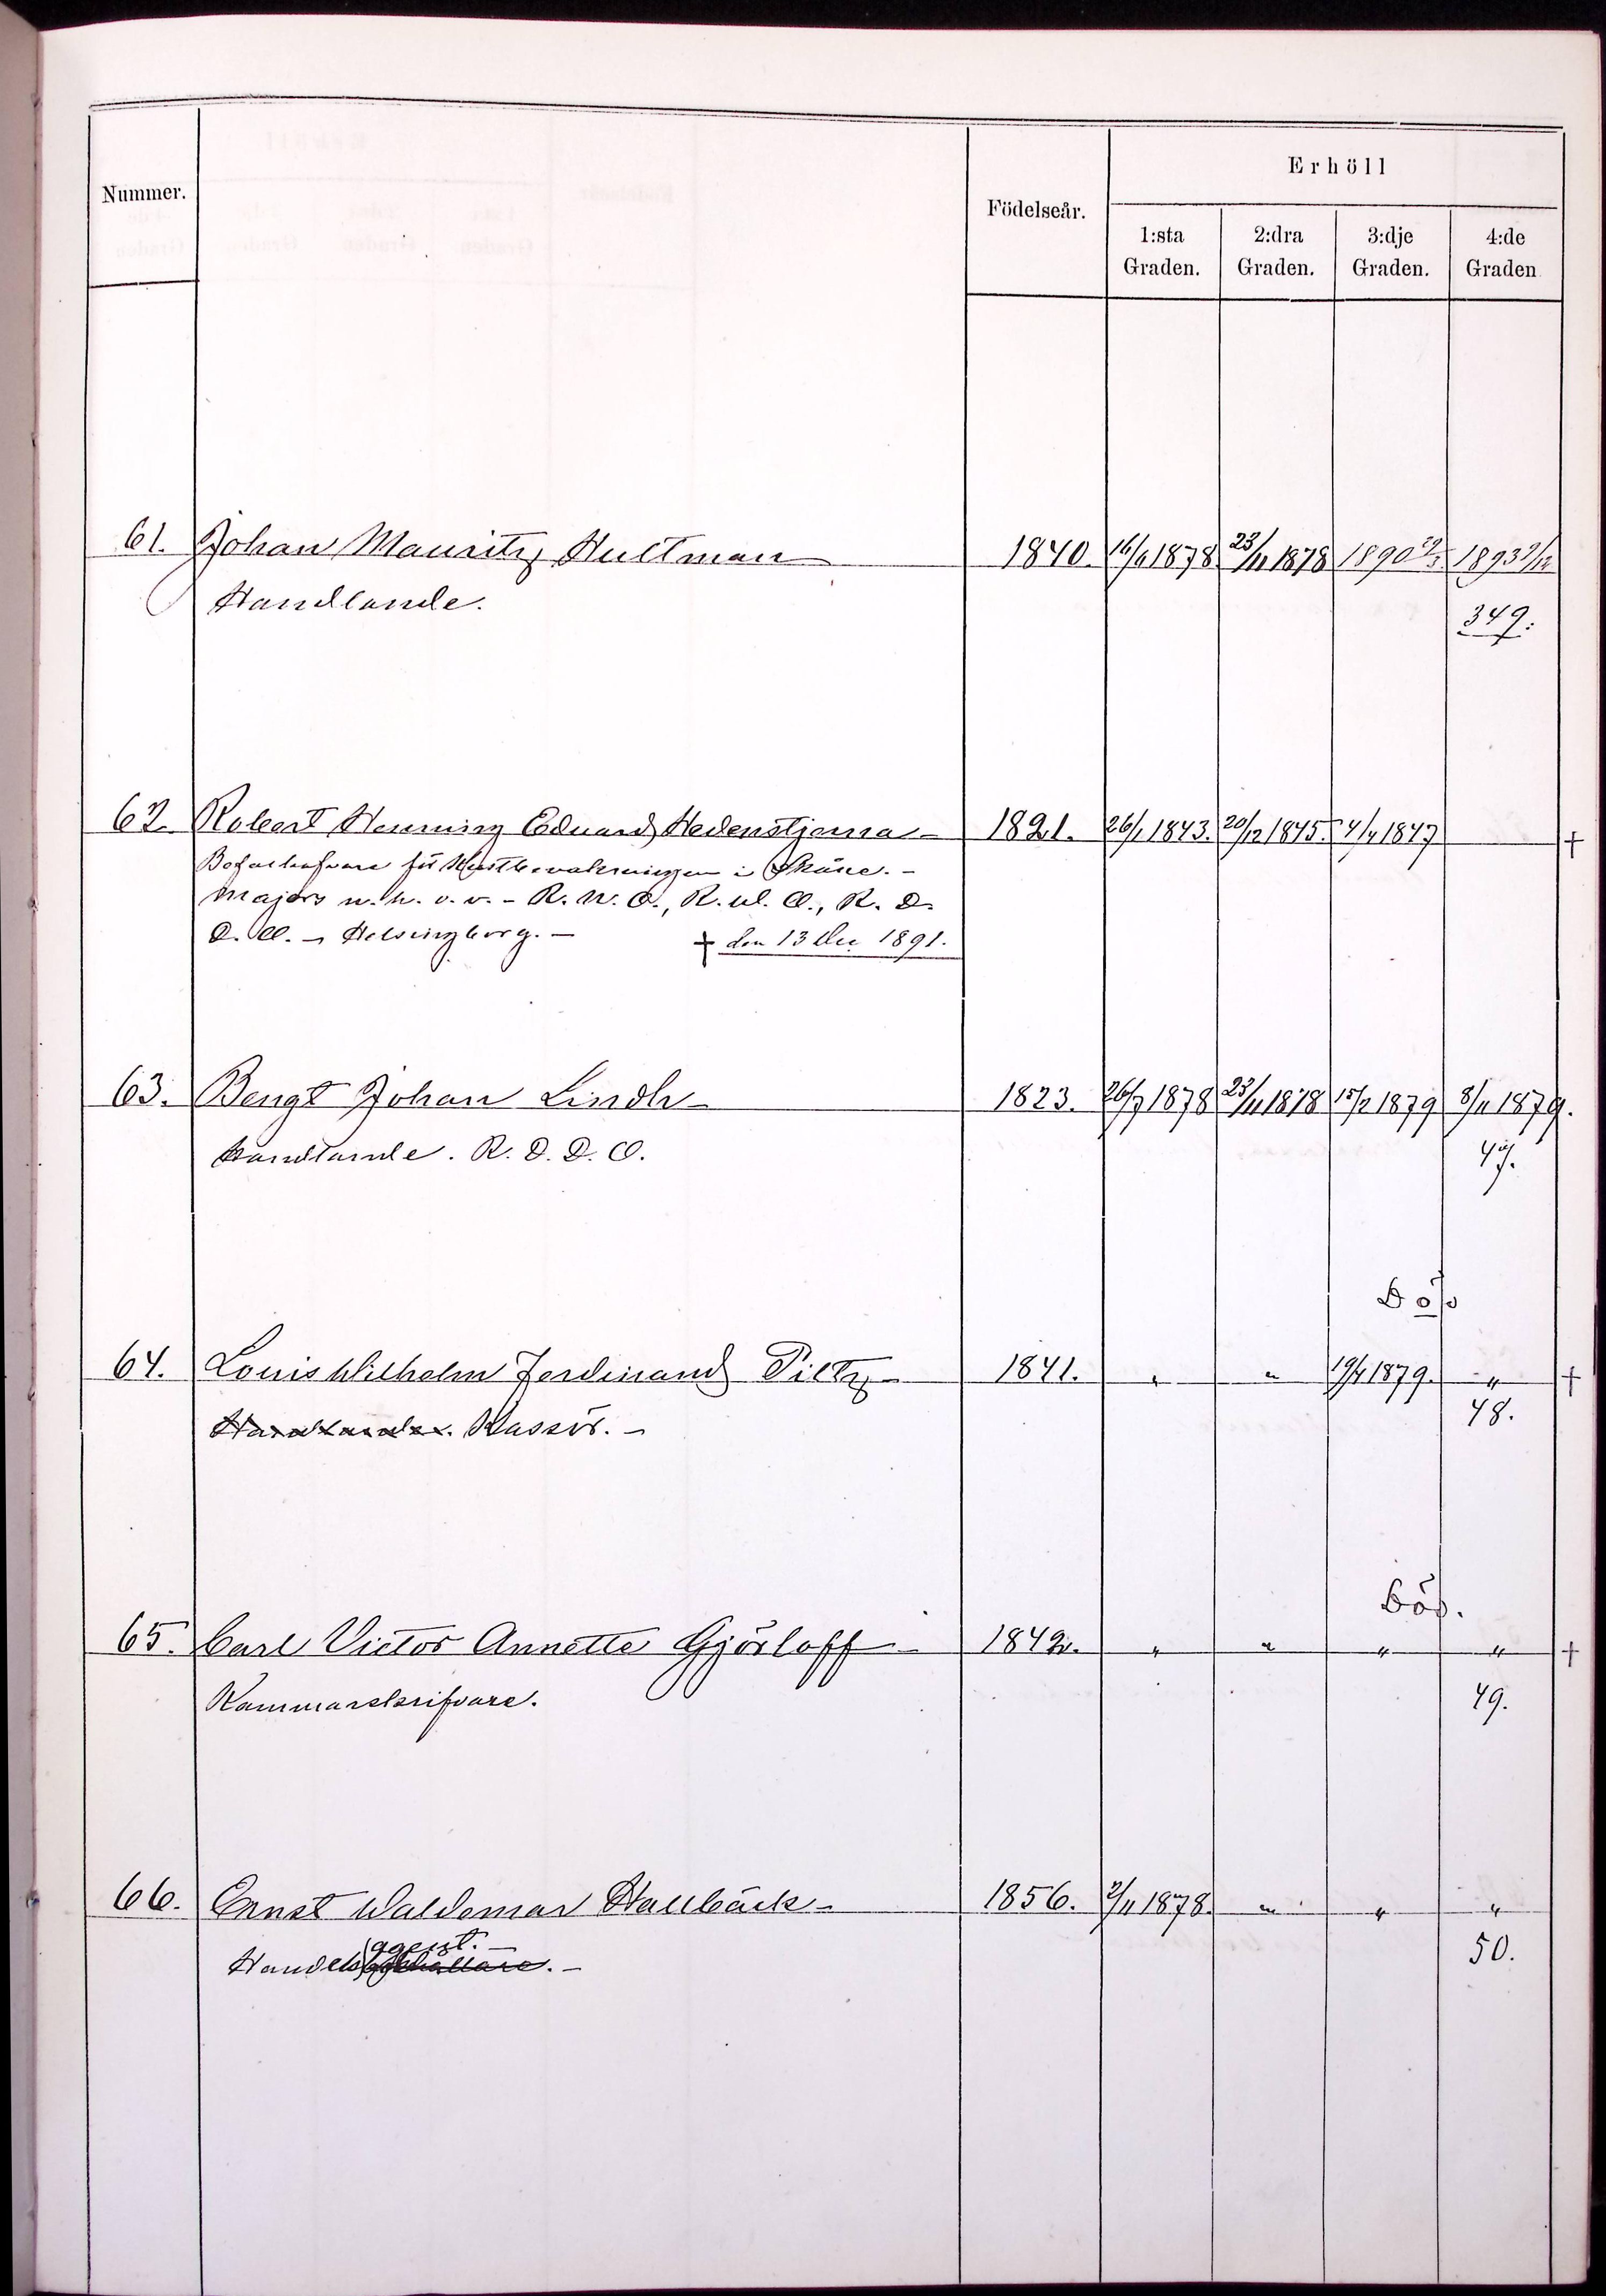 Nummer.
Födelseår.
Erhöll
1:sta Graden.
2:dra Graden.
3:dje Graden.
4:de Graden
61. Johan Mauritz Hultman 1840. 16/9 1878 23/11 1878 1890 29/3 1893 9/12
Handlande. 349.
62. Robert Henning Eduard Hedenstjerna 1821. 26/1 1843. 20/12 1845. 4/4 1847 +
Befälhafvare för Kustbevakningen i Skåne. -
Majors n. h. o. v. - R. W. O., R. D.
Helsingborg. - + den 13 Dec 1891.
63. Bengt Johan Lindh 1823. 26/7 1878 23/11 1878 15/2 1879 8/11 1879.
Handlande. R. D. D. O. 47.
Död
64. Louis Wilhelm Ferdinand Piltz 1841. " " 19/4 1879. " +
Handlande. Kassör. - 48.
Död.
65. Carl Victor Annette Gjörloff 1842. " " " " +
Kammarskrifvare. 49.
66. Ernst Waldemar Hallbäck 1856. 2/11 1878. " " "
agent.
Handelsbokhållare. - 50.